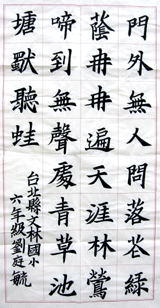 門外無人問落花綠
蔭冉冉遍天涯林鶯
啼到無聲處青草池
塘聽蛙
台北縣文林國小
六年級劉庭毓